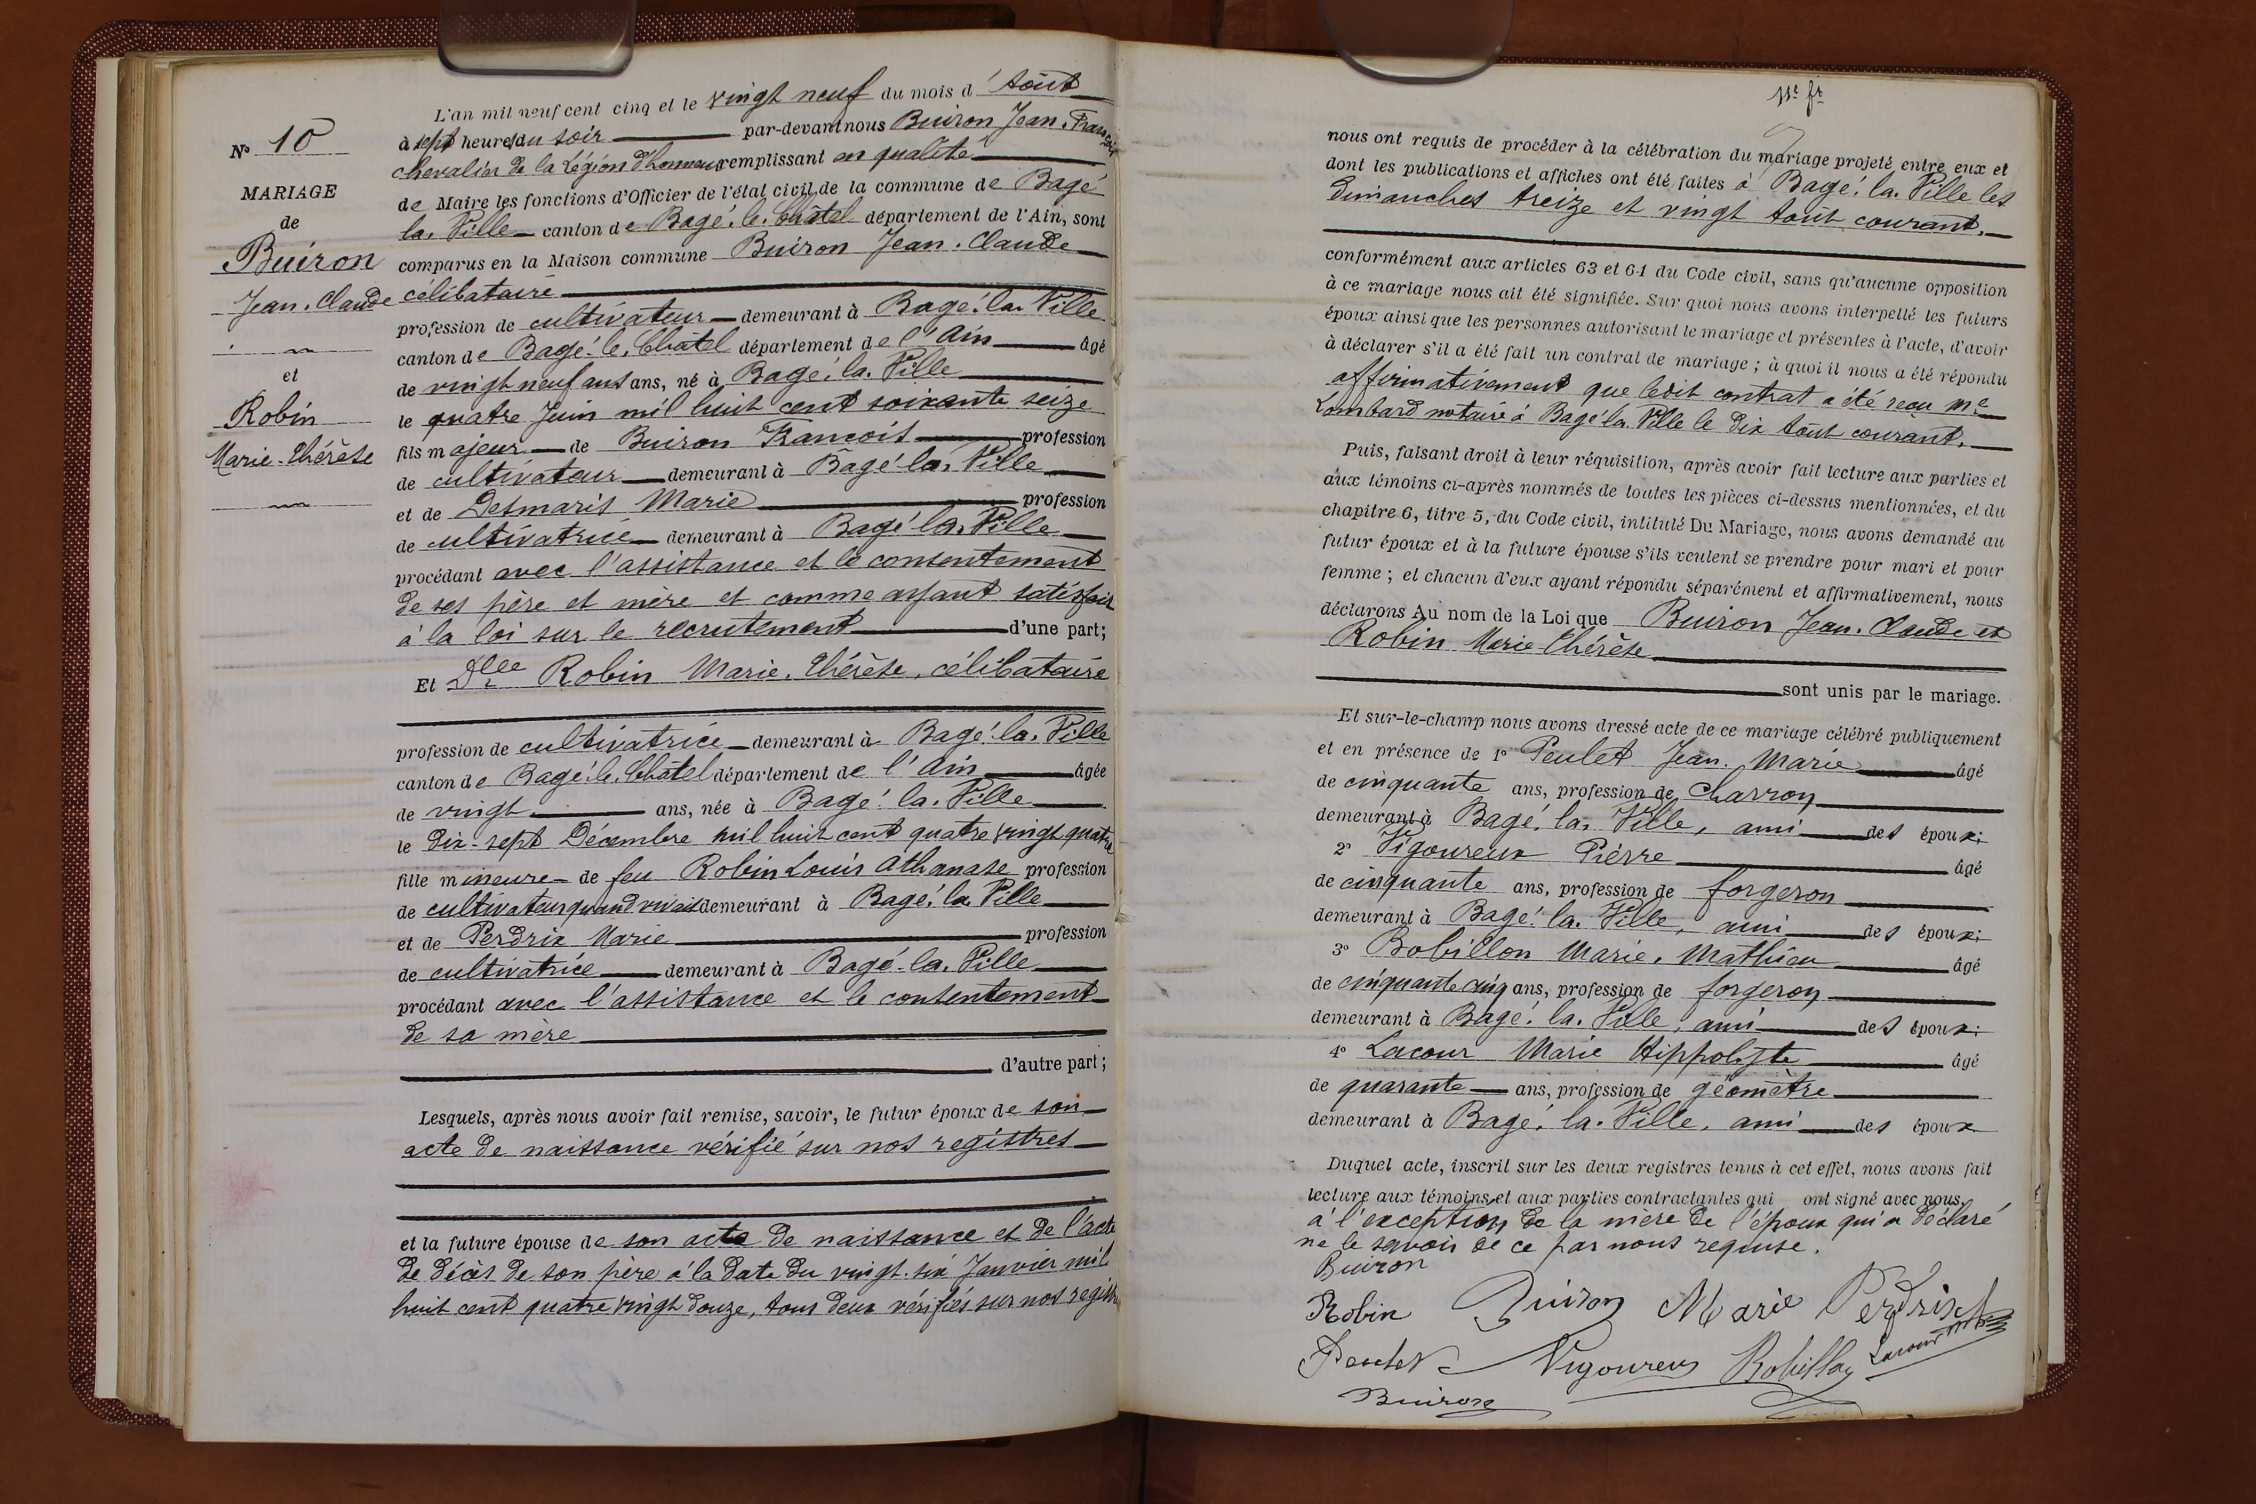 N° 10
MARIAGE
de
Buiron
Jean-Claude
et
Robin
Marie-Thérèse
L'an mil neuf cent cinq et le vingt neuf du mois d'Août
à sept heures du soir par-devant nous Buiron Jean-François
chevalier de la Légion d'honneur remplissant en qualité
de Maire les fonctions d'Officier de l'état civil de la commune de Bagé
la-Ville canton de Bagé-le-Châtel département de l'Ain, sont
comparus en la Maison commune Buiron Jean-Claude
célibataire
profession de cultivateur demeurant à Bagé-la-Ville
canton de Bagé-le-Châtel département de l'Ain âgé
de vingt neuf ans ans, né à Bagé-la-Ville
le quatre Juin mil huit cent soixante seize
fils majeur de Buiron François profession
de cultivateur demeurant à Bagé-la-Ville
et de Desmaris Marie profession
de cultivatrice demeurant à Bagé-la-Ville
procédant avec l'assistance et le consentement
de ses père et mère et comme ayant satisfait
à la loi sur le recrutement d'une part;
Et Dlle Robin Marie-Thérèse, célibataire
profession de cultivatrice demeurant à Bagé-la-Ville
canton de Bagé-le-Châtel département de l'Ain âgée
de vingt ans, née à Bagé-la-Ville
le dix-sept Décembre mil huit cent quatre vingt quatre
fille mineure de feu Robin Louis Athanase profession
de cultivateur quand vivait demeurant à Bagé-la-Ville
et de Perdrix Marie profession
de cultivatrice demeurant à Bagé-la-Ville
procédant avec l'assistance et le consentement
de sa mère
d'autre part;
Lesquels, après nous avoir fait remise, savoir, le futur époux de son
acte de naissance vérifié sur nos registres
et la future épouse de son acte de naissance et de l'acte
de décès de son père à la date du vingt-six Janvier mil
huit cent quatre vingt douze, tous deux vérifiés sur nos registres
nous ont requis de procéder à la célébration du mariage projeté entre eux et
dont les publications et affiches ont été faites à Bagé-la-Ville les
dimanches treize et vingt Août courant.
conformément aux articles 63 et 64 du Code civil, sans qu'aucune opposition
à ce mariage nous ait été signifiée. Sur quoi nous avons interpellé les futurs
époux ainsi que les personnes autorisant le mariage et présentes à l'acte, d'avoir
à déclarer s'il a été fait un contrat de mariage; à quoi il nous a été répondu
affirmativement que ledit contrat a été reçu Me
Lombard notaire à Bagé-la-Ville le dix Août courant.
Puis, faisant droit à leur réquisition, après avoir fait lecture aux parties et
aux témoins ci-après nommés de toutes les pièces ci-dessus mentionnées, et du
chapitre 6, titre 5, du Code civil, intitulé Du Mariage, nous avons demandé au
futur époux et à la future épouse s'ils veulent se prendre pour mari et pour
femme; et chacun d'eux ayant répondu séparément et affirmativement, nous
déclarons Au nom de la Loi que Buiron Jean-Claude et
Robin Marie-Thérèse
sont unis par le mariage.
Et sur-le-champ nous avons dressé acte de ce mariage célébré publiquement
et en présence de 1° Peulet Jean-Marie âgé
de cinquante ans, profession de charron
demeurant à Bagé-la-Ville, ami des époux;
2° Vigoureux Pierre âgé
de cinquante ans, profession de forgeron
demeurant à Bagé-la-Ville, ami des époux;
3° Bobillon Marie-Mathieu âgé
de cinquante cinq ans, profession de forgeron
demeurant à Bagé-la-Ville, ami des époux;
4° Lacour Marie Hippolyte âgé
de quarante ans, profession de géomètre
demeurant à Bagé-la-Ville, ami des époux
Duquel acte, inscrit sur les deux registres tenus à cet effet, nous avons fait
lecture aux témoins et aux parties contractantes qui ont signé avec nous,
à l'exception de la mère de l'époux qui a déclaré
ne le savoir de ce par nous requise.
Buiron
Robin Buiron Marie Perdrix
Peulet Vigoureux Bobillon Lacour
Buiron